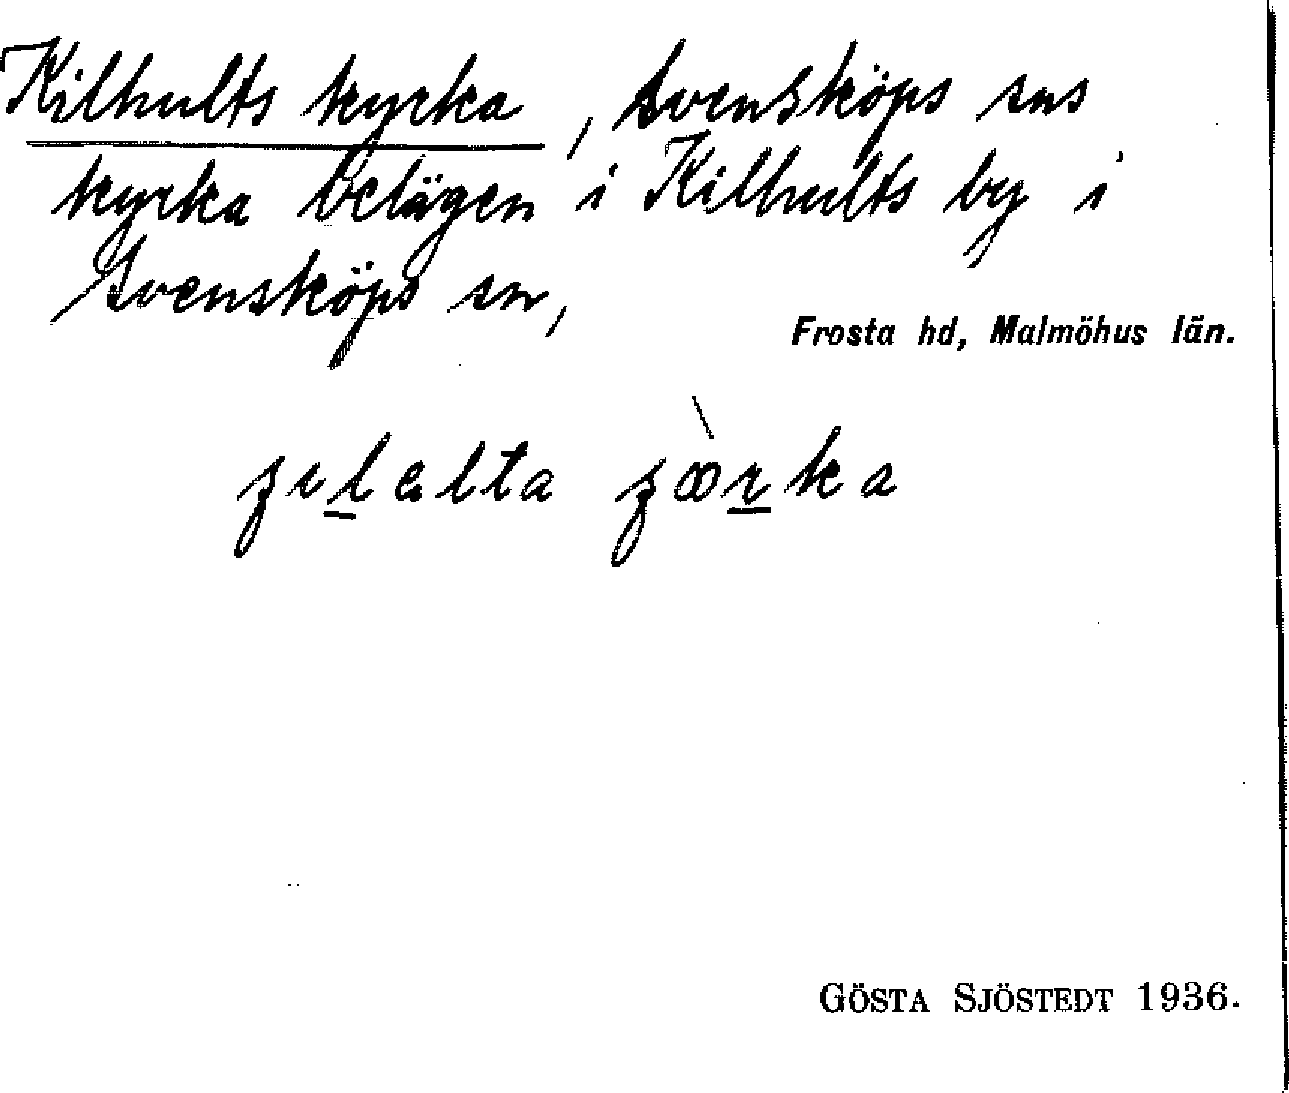 Kilhults kyrka, Svensköps sns
kyrka belägen i Kilhults by i
Svensköps sn,
Frosta hd, Malmöhus län.
GÖSTA SJÖSTEDT 1936.